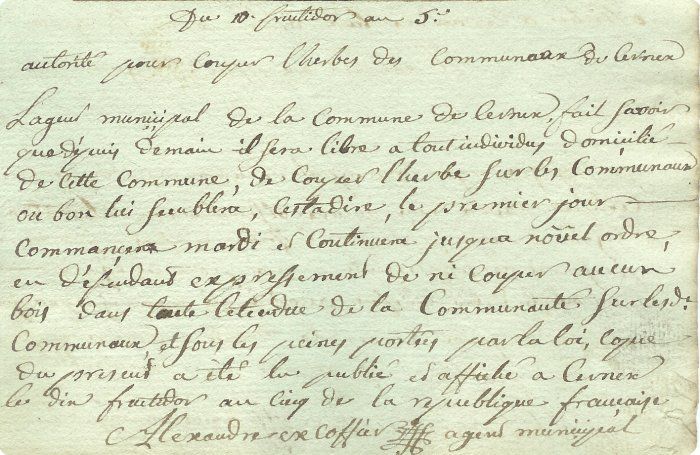 Du 10 fructidor an 5.
autorité pour Couper l'herbes des Communaux de Cernex
L'agent municipal de la Commune de Cernex, fait savoir
que depuis demain il sera libre a tout individus domicilié
de cette Commune, de Couper l'herbe sur les Communaux
ou bon lui semblera, cestadire, le premier jour
Commançera mardi et Continuera jusqua nouvel ordre,
en deffendant expressement de ni Couper aucun
bois dans toute letendue de la Communauté sur lesd.
Communaux, et sous les peines portées par la loi, copie
du present a été lu publié et affiché a Cernex
le dix fructidor an Cinq de la republique francaise
Alexandre excoffier agent municipal